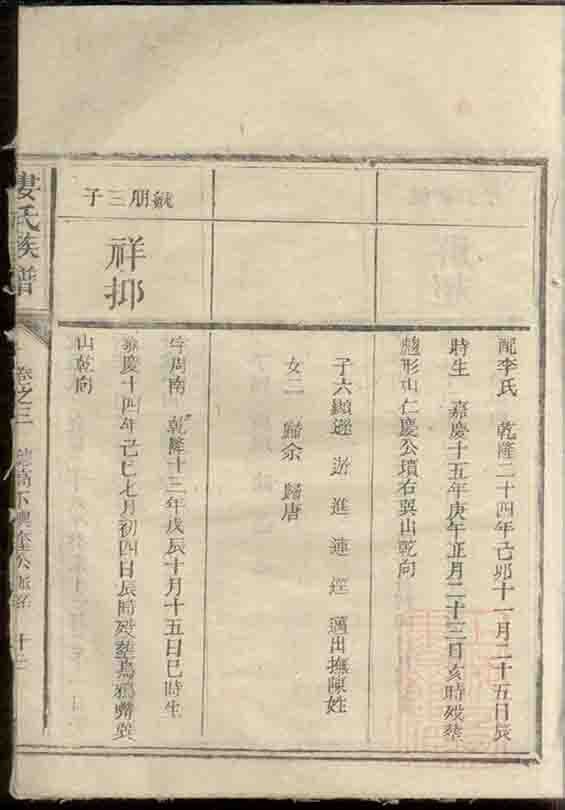 配李氏 乾隆二十四年己卯十一月二十五日辰
時生 嘉慶十五年庚午正月二十三日亥時歿葬
形山仁慶公墳右巽山乾向
子六顯 進 連 邁出撫陳姓
女二 歸余 歸唐
朋三子
祥抑
字周南 乾隆十三年戊辰十月十五日巳時生
嘉慶十四年己巳七月初四日辰時歿葬烏鴉嘴巽
山乾向
婁氏族譜
卷之三
十三